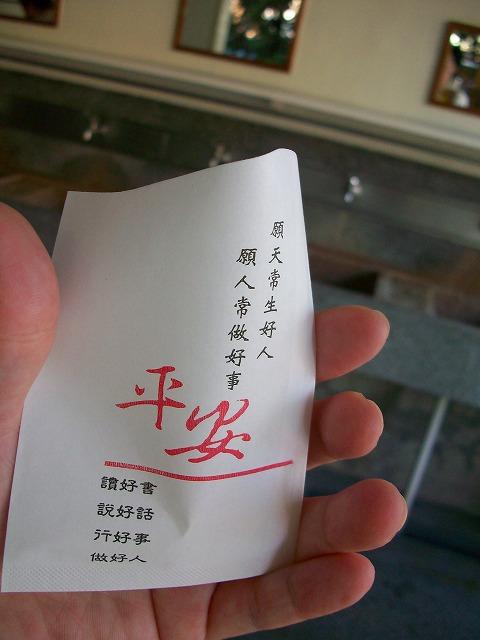 願天常生好人
願人常做好事
平安
讀好書
說好話
行好事
做好人